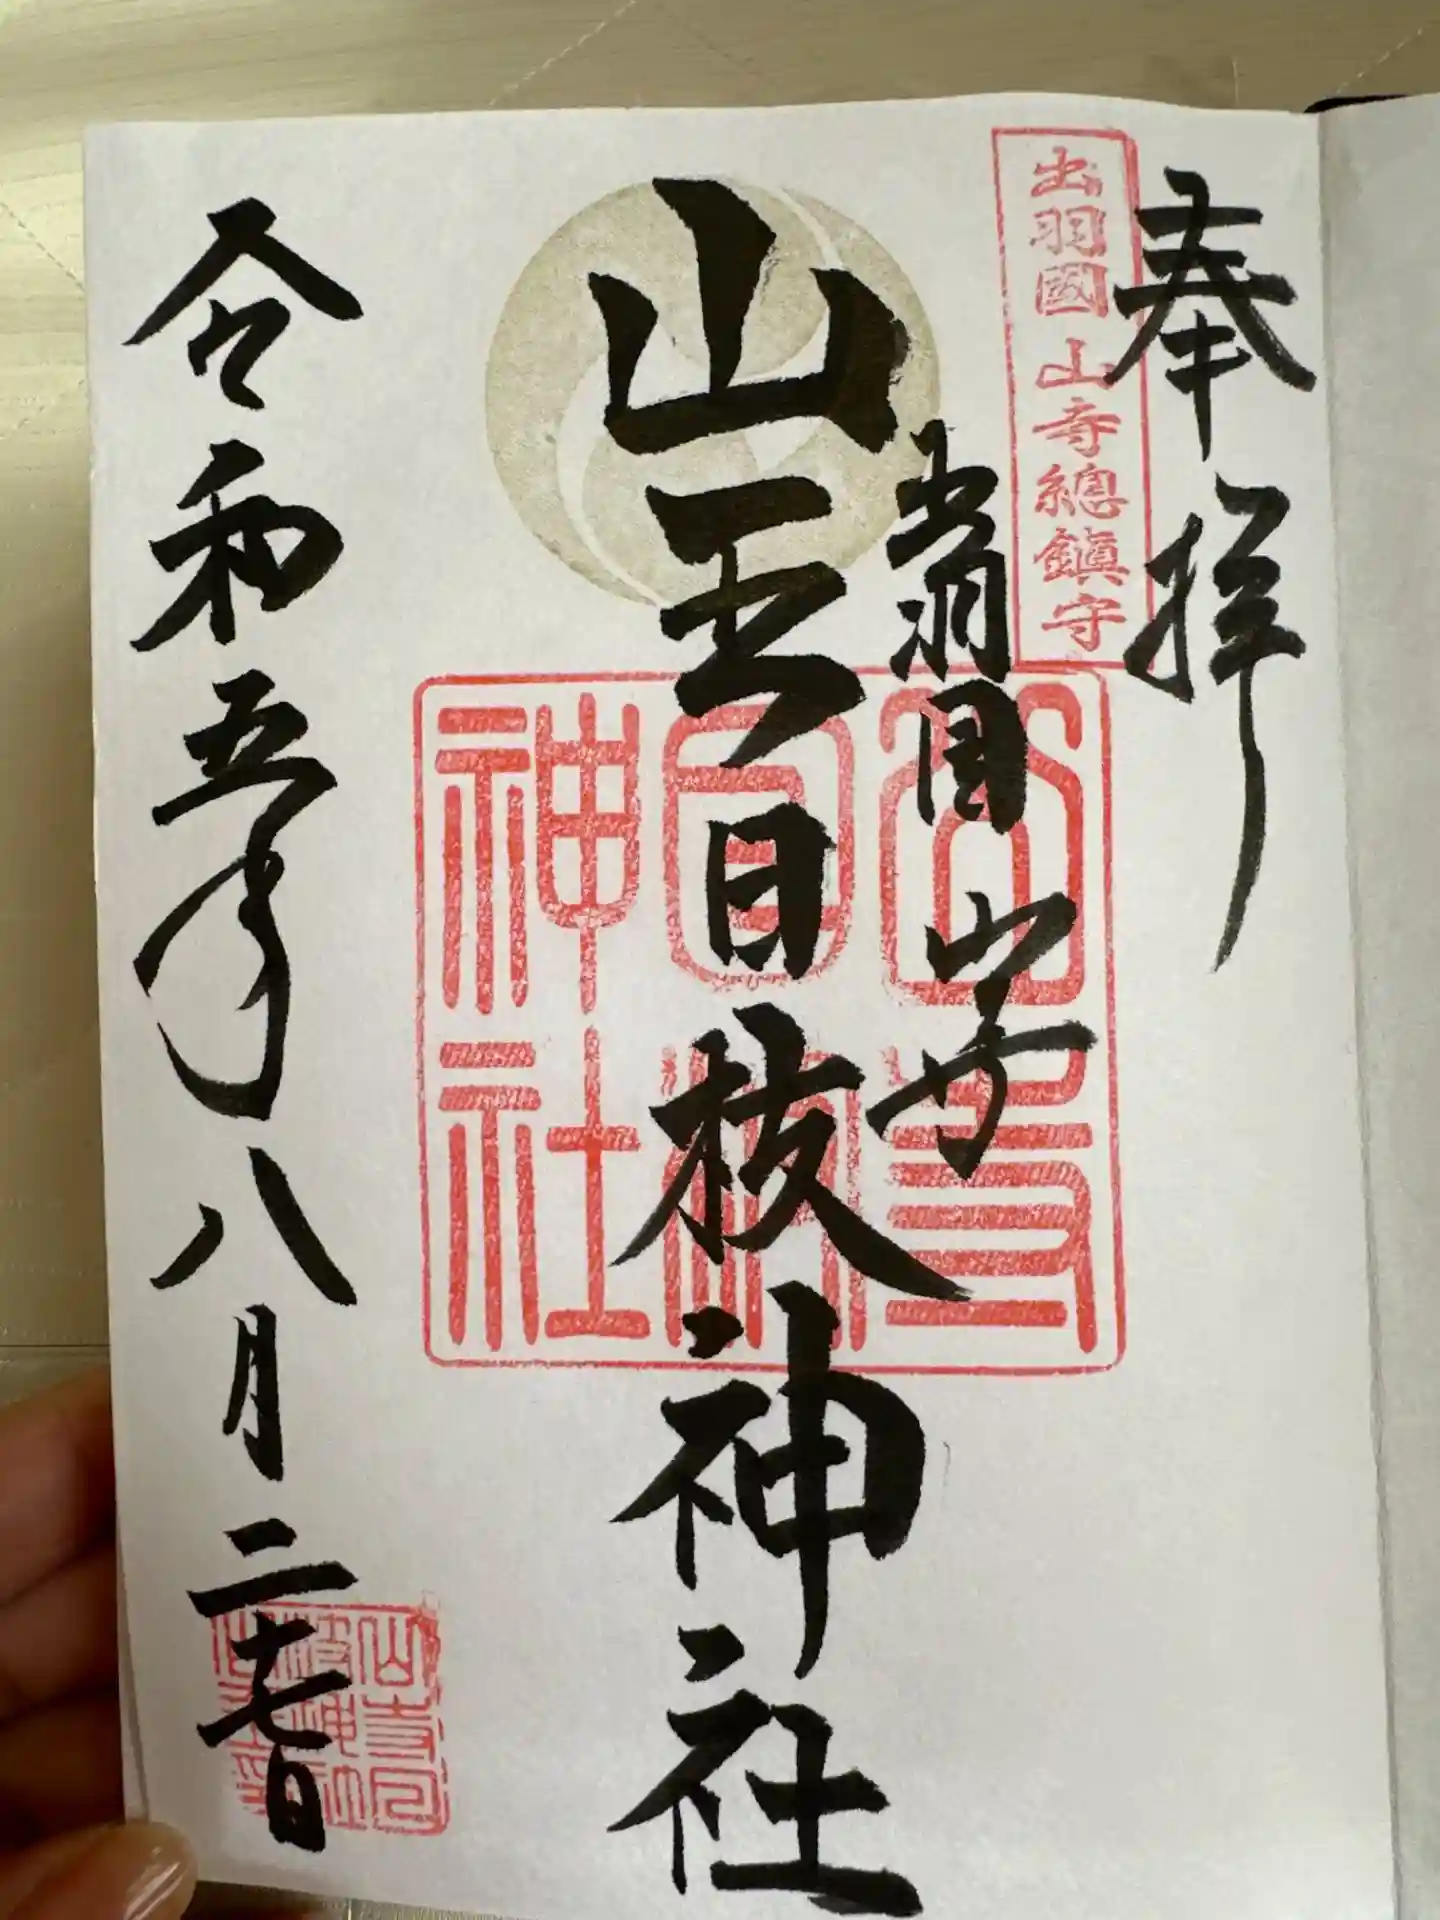 奉拝
出羽國 山寺總鎮守
出羽国 山寺
山王日枝神社
山寺日枝神社
令和五年八月二十七日